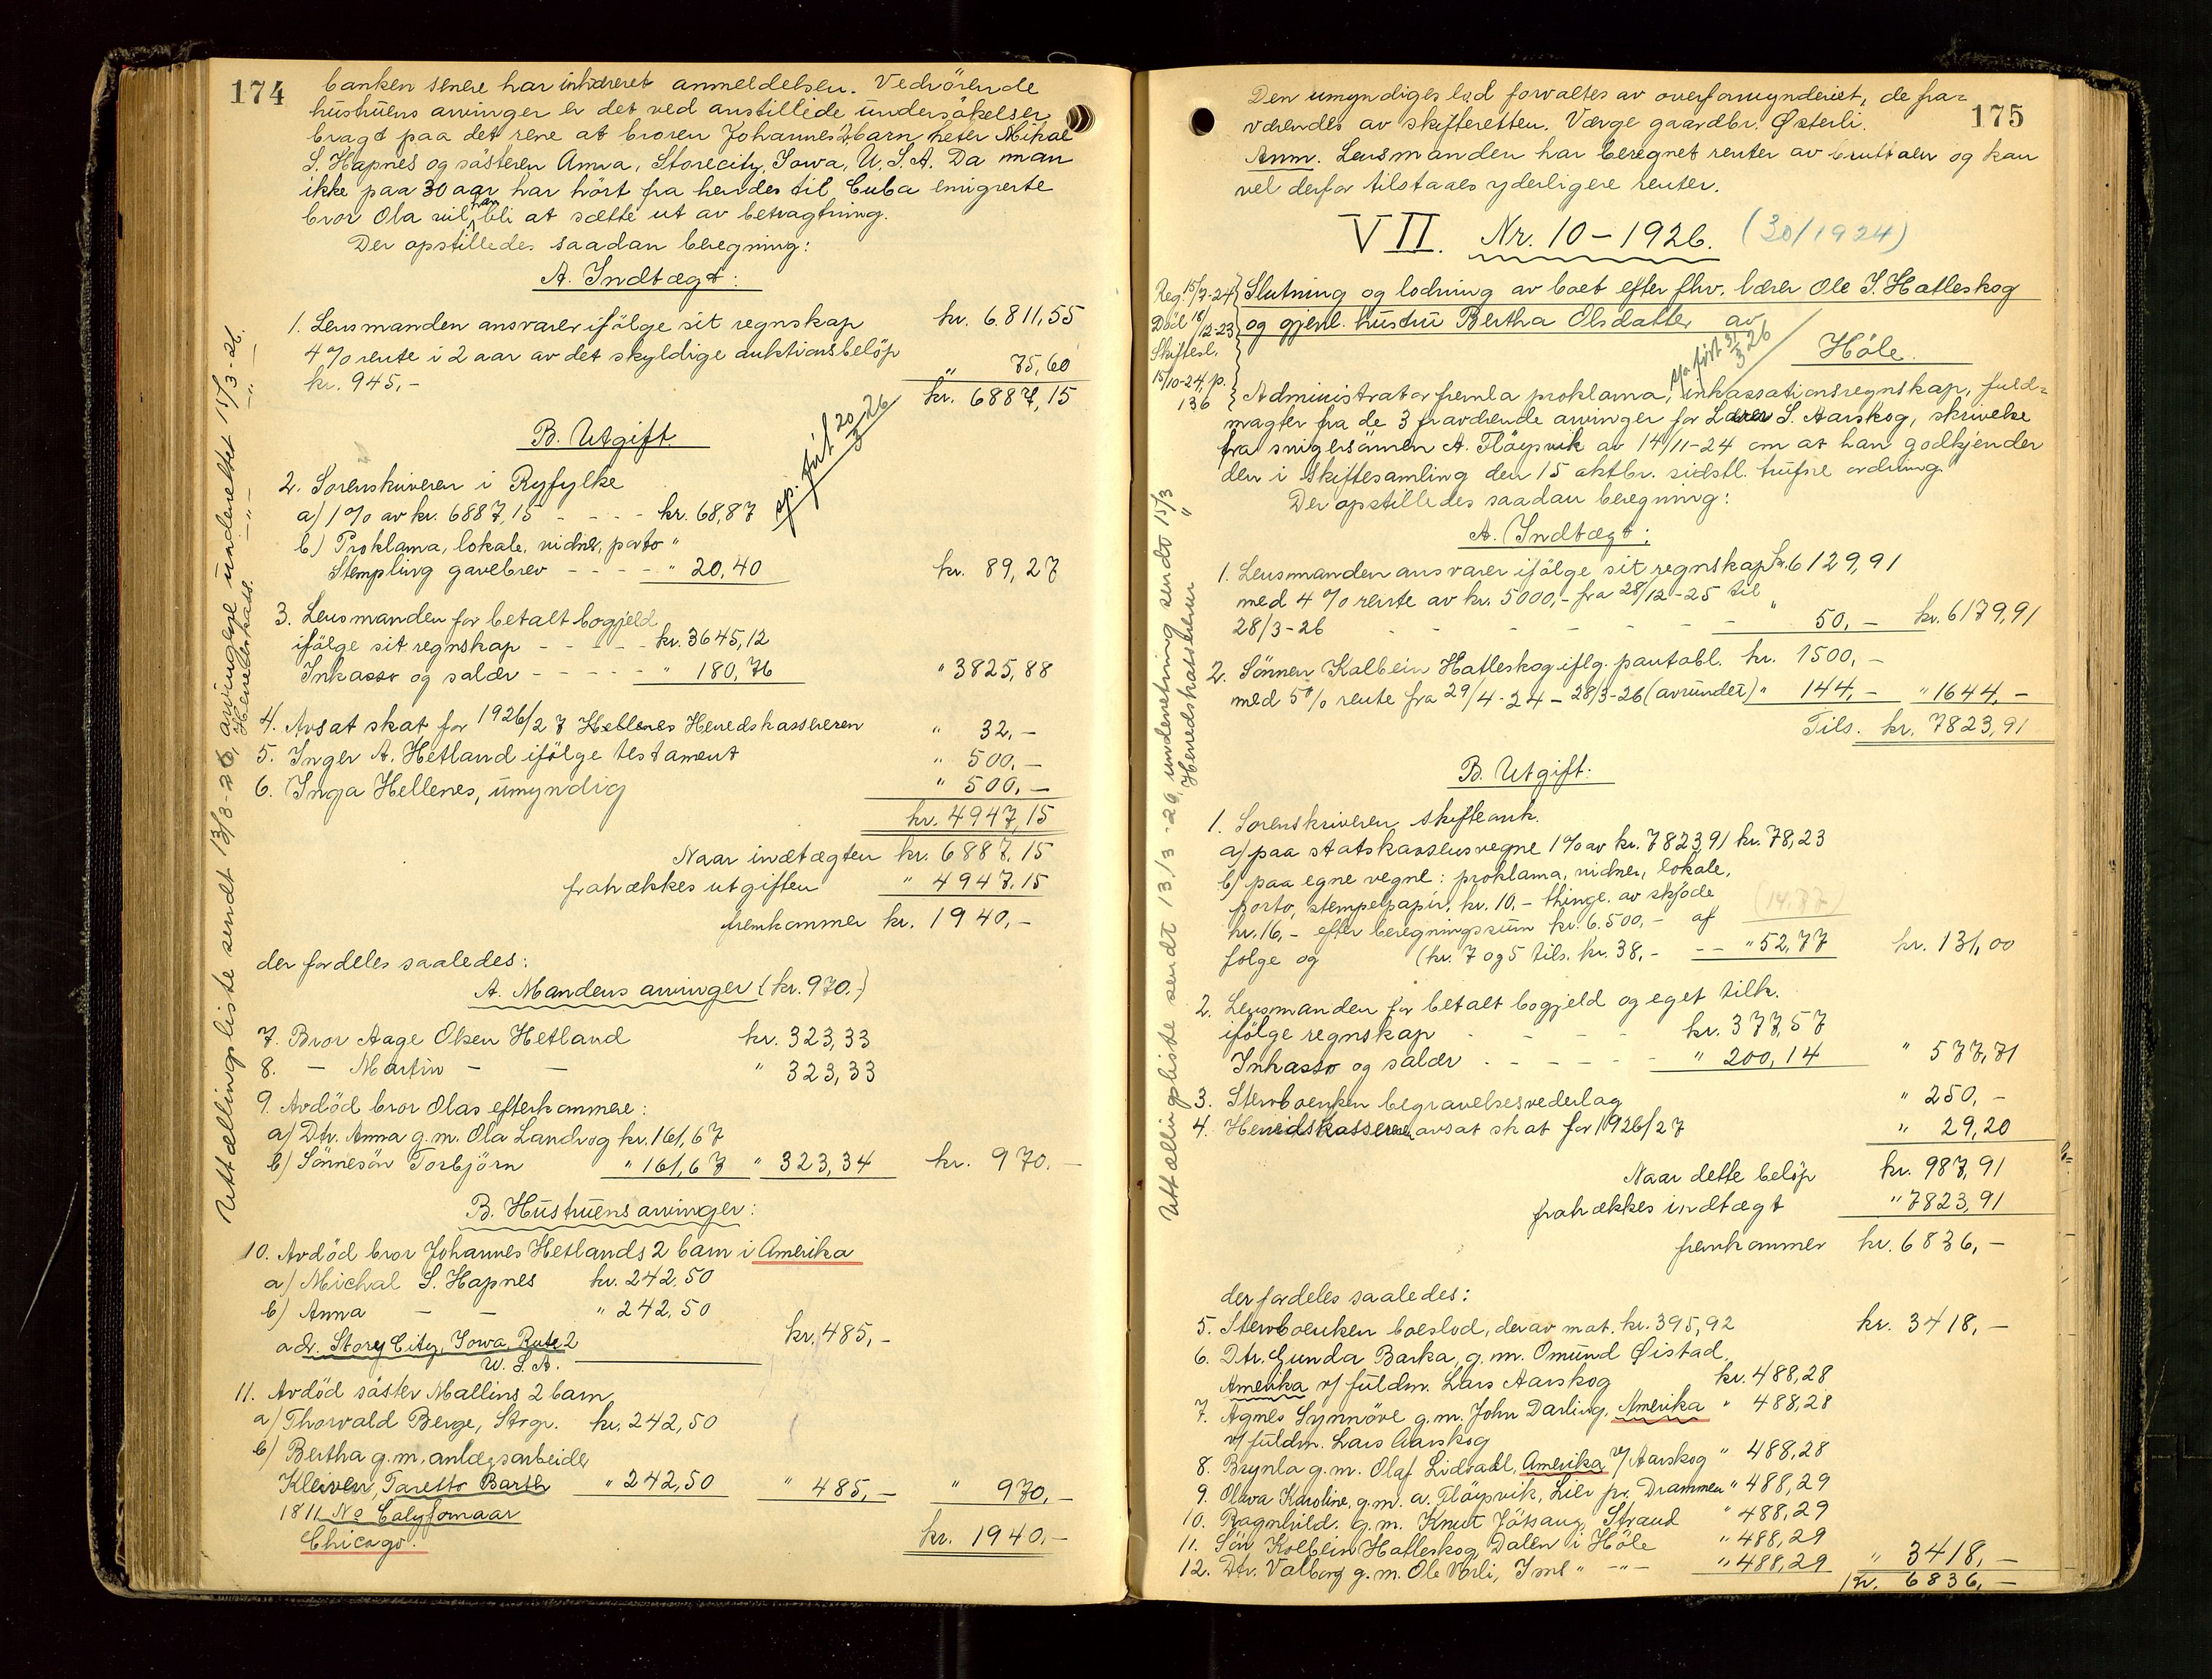 174
banken senere har inhæreret anmeldelsen. Vedrörende
hustruens arvinger er det ved anstillede undersökelser
bragt paa det rene at broren Johannes 2 barn heter Mikal
S. Hapnes og sösteren Anna, Storecity, Iowa, U.S.A. Da man
ikke paa 30 aar har hört fra hendes til Cuba emigrerte
bror Ola vil han bli at sætte ut av betragtning.
Der opstilledes saadan beregning:
A. Indtægt:
1. Lensmanden ansvarer ifölge sit regnskap kr. 6.811,55
4 % rente i 2 aar av det skyldige auktionsbelöp
kr. 945,- " 75,60
kr. 6887,15
B. Utgift.
2. Sorenskriveren i Ryfylke
a) 1 % av kr. 6887,15 - - - - kr. 68,87
b) Proklama, lokale, vidner, porto "
Stempling gavebrev - - - - " 20,40 kr. 89,27
3. Lensmanden for betalt bogjeld
ifölge sit regnskap - - - - - kr. 3645,12
Inkasso og salær - - - - - " 180,76 " 3825,88
4. Avsat skat for 1926/27 Hellenes Herredskassereren " 32,-
5. Inger A. Hetland ifölge testament " 500,-
6. Inga Hellenes, umyndig " 500,-
kr. 4947,15
Naar indtægten kr. 6887,15
fratrækkes utgiften " 4947,15
fremkommer kr. 1940,-
der fordeles saaledes:
A. Mandens arvinger (kr. 970.-)
7. Bror Aage Olsen Hetland kr. 323,33
8. - Martin - - " 323,33
9. Avdöd bror Olas efterkommere:
a) Dtr. Anna g.m. Ola Landsog kr. 161,67
b) Sönnesön Torbjörn " 161,67 " 323,34 kr. 970.-
B. Hustruens arvinger:
10. Avdöd bror Johannes Hetlands 2 barn i Amerika
a) Michal S. Hapnes kr. 242,50
b) Anna - - " 242,50
adr. Story City, Iowa, Rute 2 kr. 485,-
U.S.A.
11. Avdöd söster Mallins 2 barn
a) Thorvald Berge, Stvgr. kr. 242,50
b) Bertha g.m. anlægsarbeider
Kleiven, Taretto Barth " 242,50 " 485,- " 970,-
1811 No Calyfornaar
Chicago. kr. 1940,-
Uttællingsliste sendt 13/3-26, arvinglyse underrettet 15/3-26.
Herredskass. -"- -"-
sp. fört 20/3-26
175
Den umyndiges lod forvaltes av overformynderiet, de fra-
værendes av skifteretten. Værge gaardbr. Østerli.
Anm. Lensmanden har beregnet renter av bruttoen og kan
vel derfor tilstaaes yderligere renter.
VII. Nr. 10-1926. (30/1924)
Reg. 15/7-24
Död 18/12-23
Skiftesl.
15/10-24, p.
136
Slutning og lodning av boet efter fhv. lærer Ole S. Hatleskog
og gjenl. hustru Bertha Olsdatter av
Höle.
sp. fört 31/3 26
Administrator fremla proklama, inkassationsregnskap, fuld-
magter fra de 3 fraværende arvinger for Lærer S. Aarskog, skrivelse
fra svigersönnen A. Flöysvik av 14/11-24 om at han godkjender
den i skiftesamling den 15 oktbr. sidstl. trufne ordning.
Der opstilledes saadan beregning:
A. Indtægt:
1. Lensmanden ansvarer ifölge sit regnskap kr. 6129,91
med 4 % rente av kr. 5000,- fra 28/12-25 til
28/3-26 - - - - - - " 50,- kr. 6179,91
2. Sönnen Kolbein Hatleskog iflg. pantobl. kr. 1500,-
med 5 % rente fra 29/4-24 - 28/3-26 (avrundet) " 144,- " 1644,-
Tils. kr. 7823,91
B. Utgift:
1. Sorenskriveren, skifteark.
a) paa statskassens vegne 1 % av kr. 7823,91 kr. 78,23
b) paa egne vegne: proklama, vidner, lokale,
porto, stempelpapir, kr. 10,- thingl. av skjöde (14.77)
kr. 16,- efter beregningssum kr. 6.500,- af
folge og (kr. 7 og 5 tils. kr. 38,- -- " 52,77 kr. 131,00
2. Lensmanden for betalt bogjeld og eget tilk.
ifölge regnskap - - - - kr. 377,57
Inkasso og salær - - - - - " 200,14 " 577,71
3. Stervboenken begravelsesvederlag " 250,-
4. Herredskassereren avsat skat for 1926/27 " 29,20
Naar dette belöp kr. 987,91
fratrækkes indtægt " 7823,91
fremkommer kr. 6836,-
der fordeles saaledes:
5. Stervboenken boeslod, derav mat. kr. 395,92 kr. 3418,-
6. Dtr. Gunda Barka, g.m. Omund Øistad,
Amerika v/ fuldm. Lars Aarskog kr. 488,28
7. Agnes Synnöve g.m. John Darling, Amerika " 488,28
v/ fuldm. Lars Aarskog
8. Brynla g.m. Olaf Lidvall, Amerika v/ Aarskog " 488,28
9. Olava Karoline, g.m. A. Flöysvik, Lier pr. Drammen " 488,29
10. Ragnhild, g.m. Knut Jötsang, Strand " 488,29
11. Sön Kolbein Hatleskog, Dalen i Höle " 488,29
12. Dtr. Valborg g.m. Ole Vorli, Ims " -"- " 488,29 " 3418,-
kr. 6836,-
Uttællingsliste sendt 13/3-26, underretning sendt 15/3
Herredskassereren "